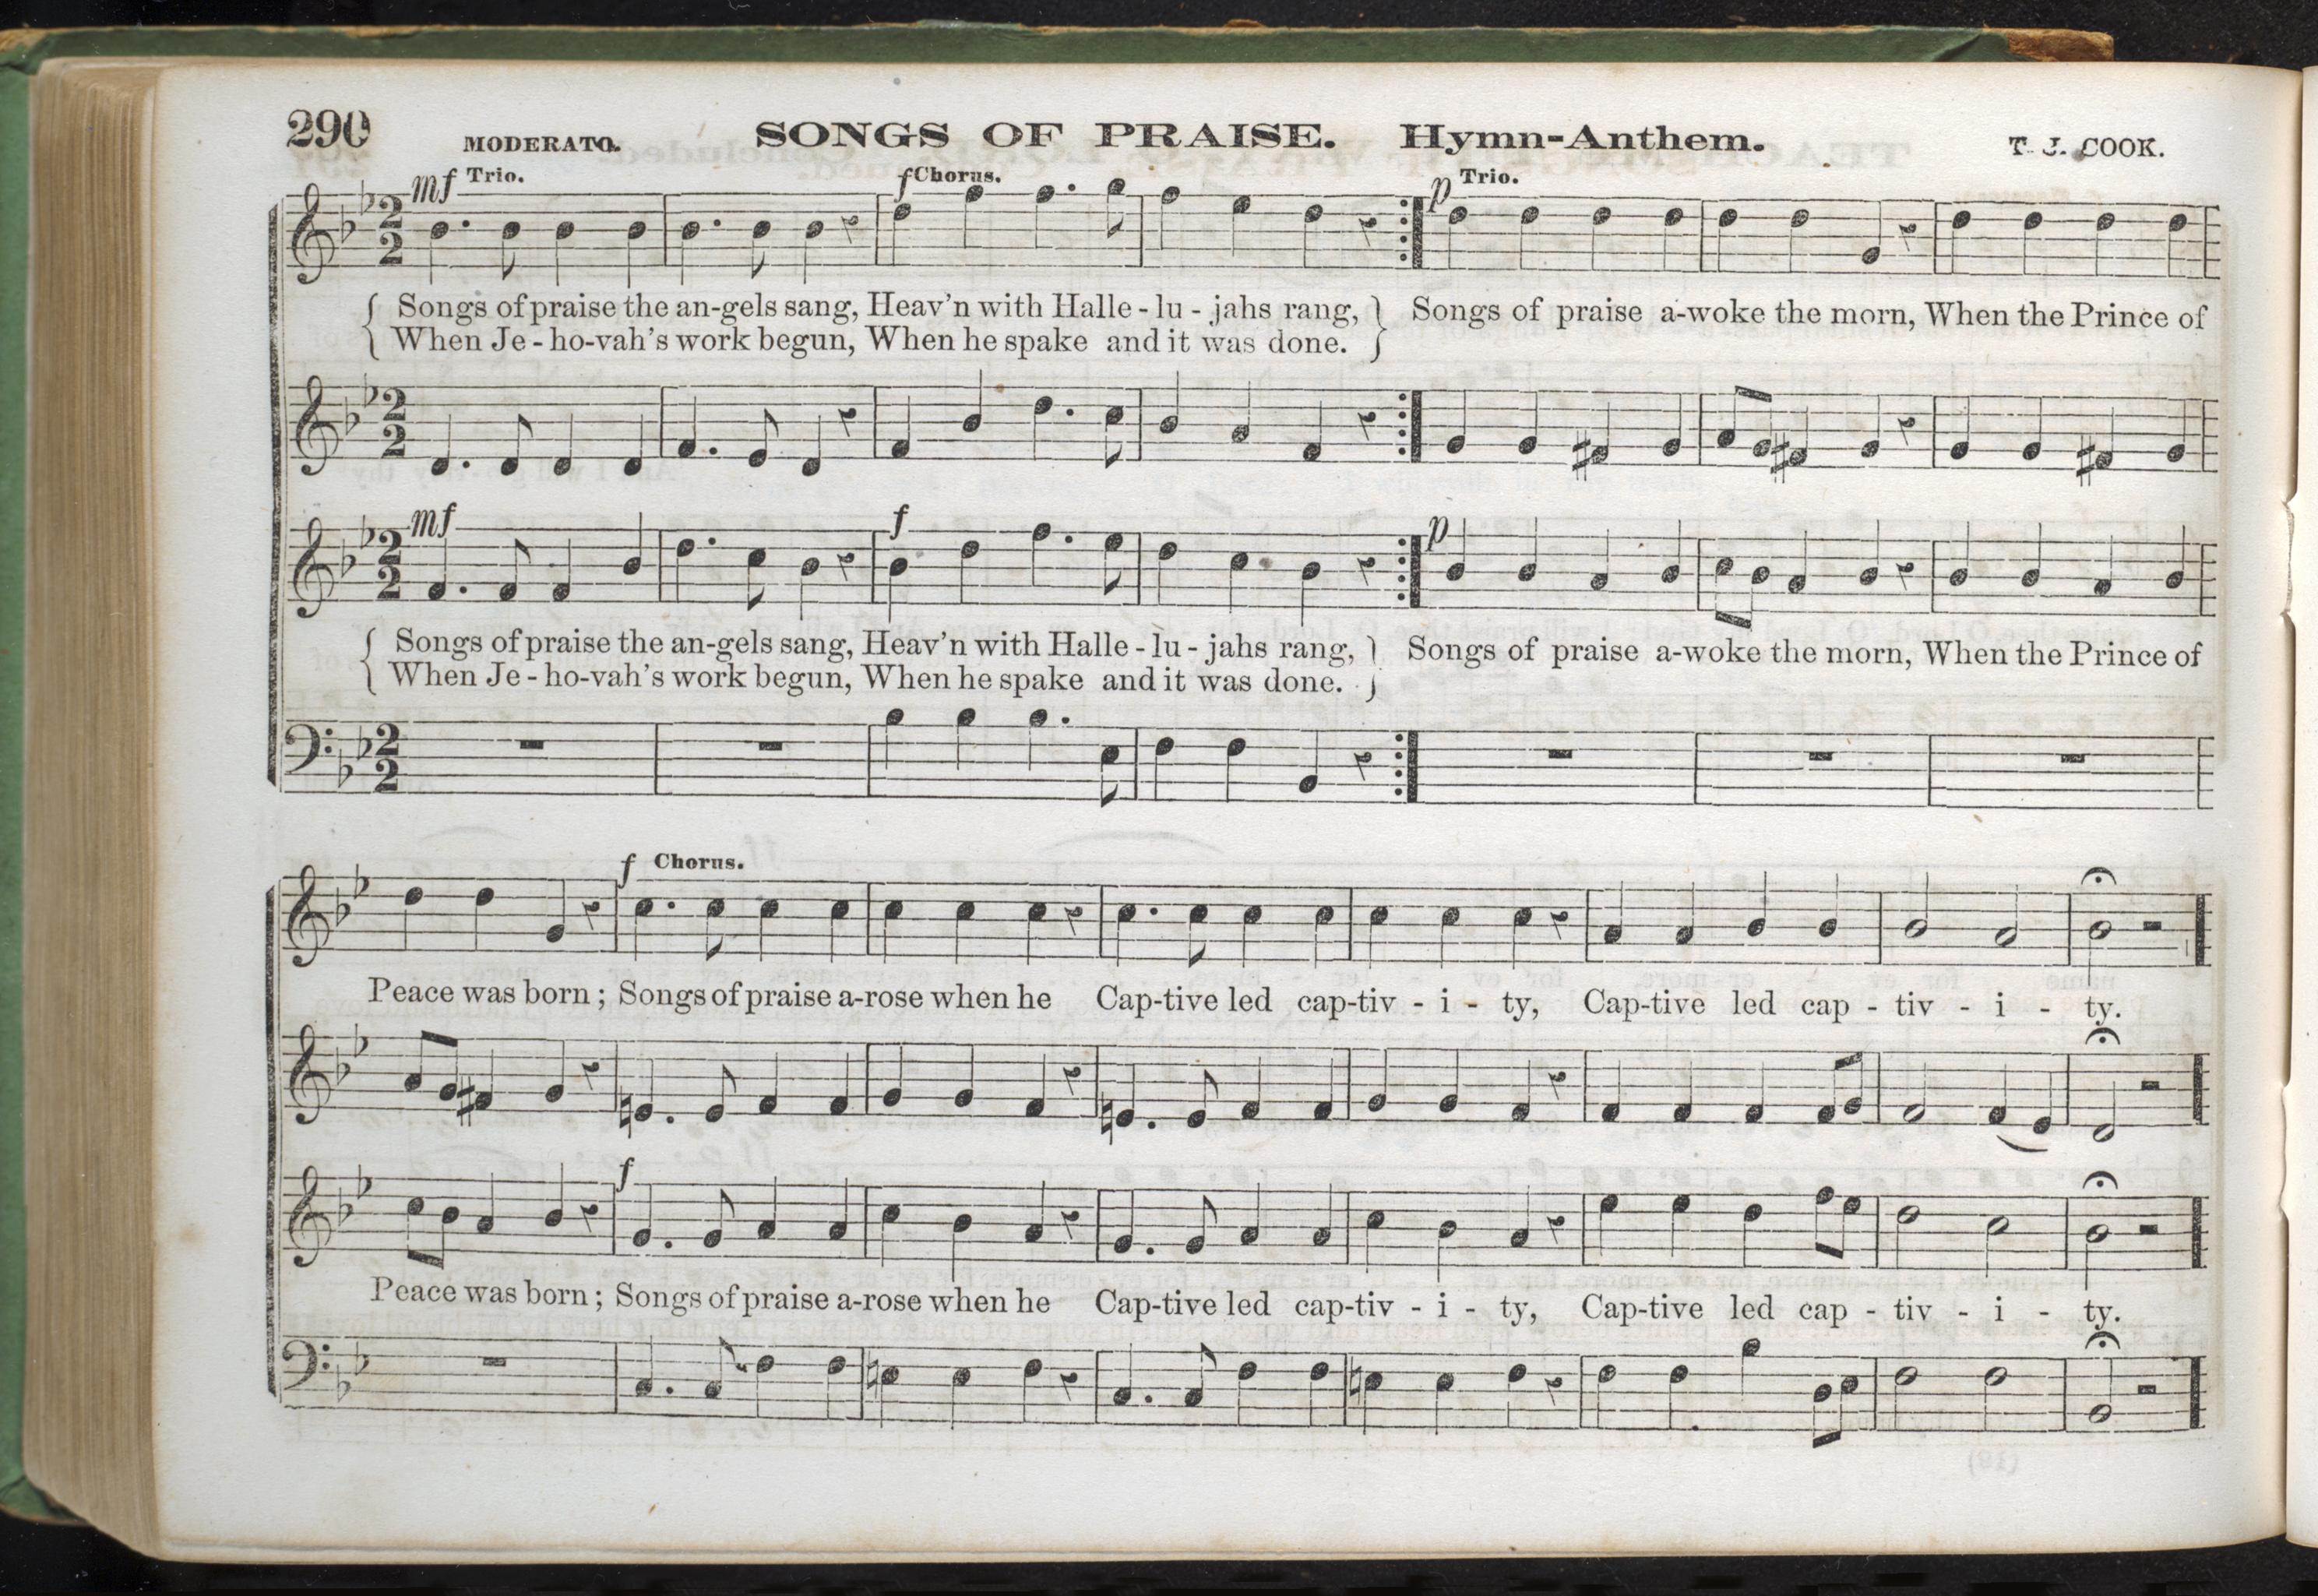 290 MODERATO. SONGS OF PRAISE. Hymn-Anthem. T. J. COOK.
mf Trio. f Chorus. p Trio.
Songs of praise the an-gels sang, Heav'n with Halle - lu - jahs rang, Songs of praise a-woke the morn, When the Prince of
When Je - ho-vah's work begun, When he spake and it was done.
mf f p
Songs of praise the an-gels sang, Heav'n with Halle - lu - jahs rang, Songs of praise a-woke the morn, When the Prince of
When Je - ho-vah's work begun, When he spake and it was done.
f Chorus.
Peace was born; Songs of praise a-rose when he Cap-tive led cap-tiv - i - ty, Cap-tive led cap - tiv - i - ty.
f
Peace was born; Songs of praise a-rose when he Cap-tive led cap-tiv - i - ty, Cap-tive led cap - tiv - i - ty.